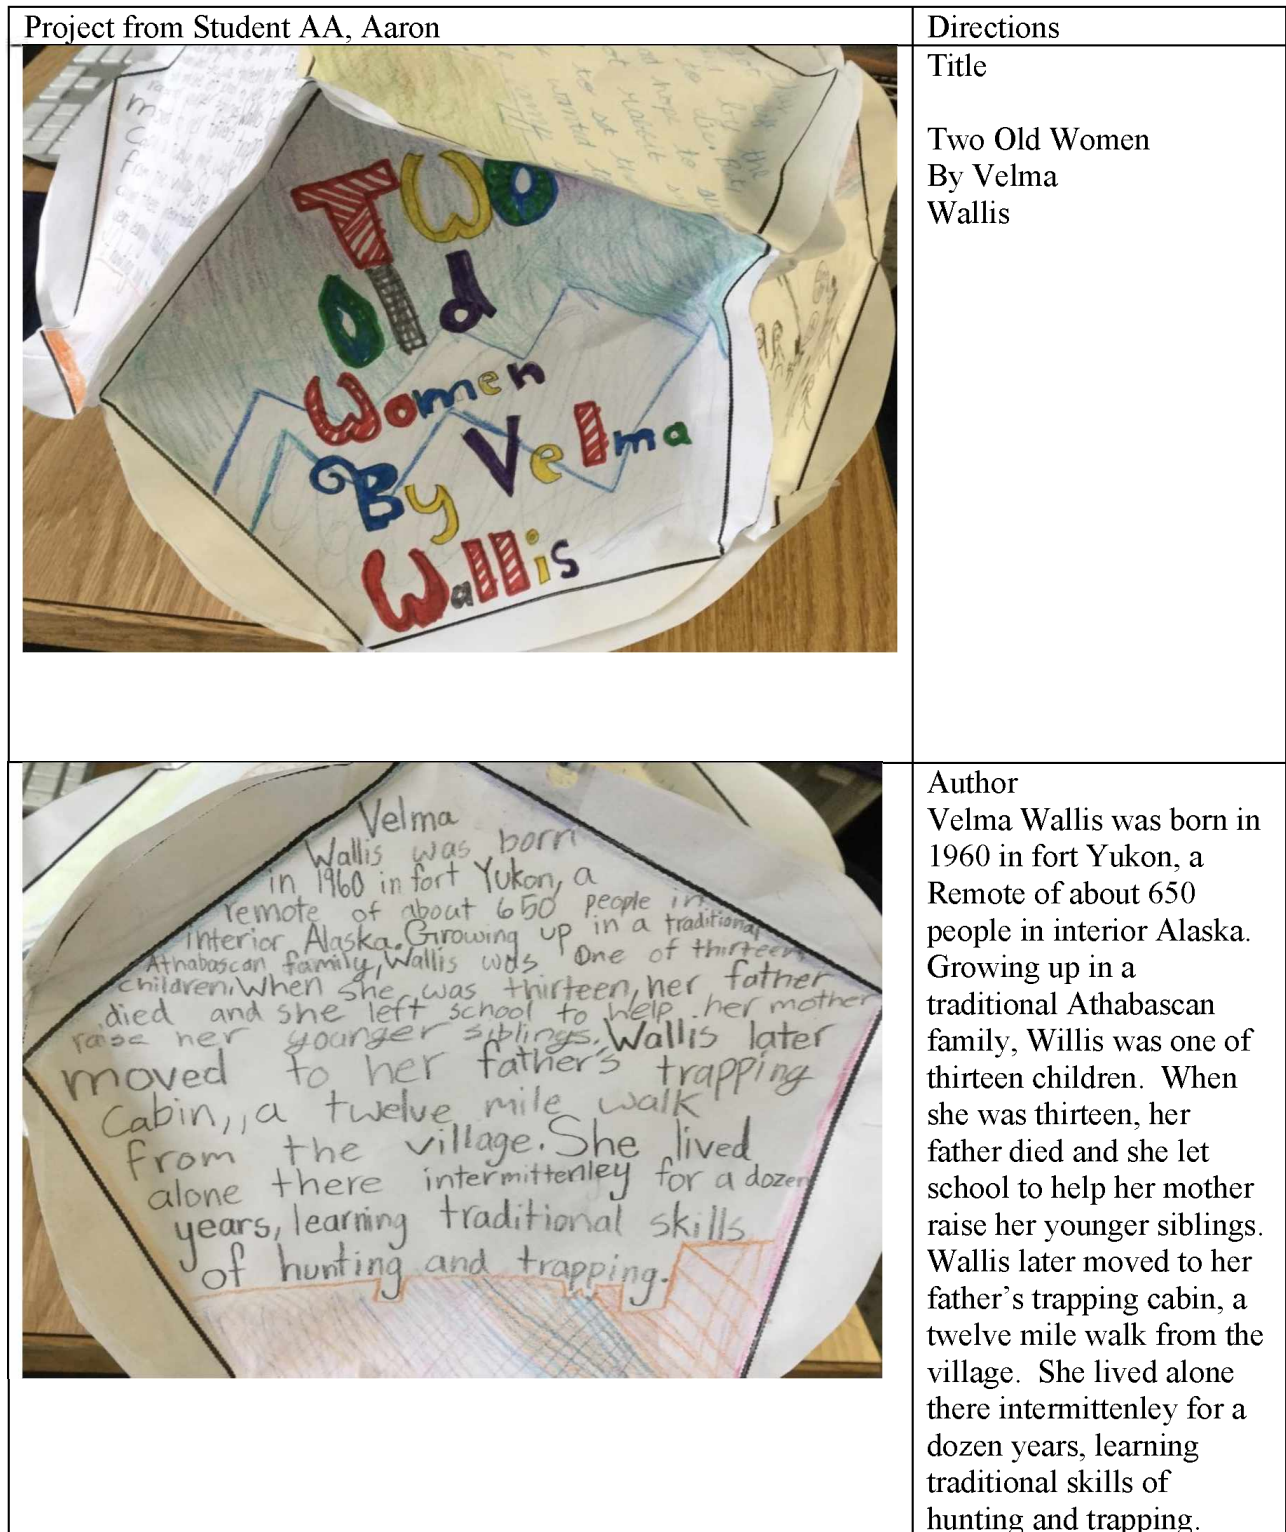 Project from Student AA, Aaron
Directions
Two
Old
Women
By Velma
Wallis
Title
Two Old Women
By Velma
Wallis
Velma
Wallis was born
in 1960 in fort Yukon, a
remote of about 650 people in
interior Alaska. Growing up in a traditional
Athabascan family, Wallis was One of thirteen
children. When she was thirteen, her father
died and she left school to help her mother
raise her younger siblings. Wallis later
moved to her father's trapping
Cabin,, a twelve mile walk
from the village. She lived
alone there intermittenley for a dozen
years, learning traditional skills
of hunting and trapping.
Author
Velma Wallis was born in
1960 in fort Yukon, a
Remote of about 650
people in interior Alaska.
Growing up in a
traditional Athabascan
family, Willis was one of
thirteen children.  When
she was thirteen, her
father died and she let
school to help her mother
raise her younger siblings.
Wallis later moved to her
father's trapping cabin, a
twelve mile walk from the
village.  She lived alone
there intermittenley for a
dozen years, learning
traditional skills of
hunting and trapping.